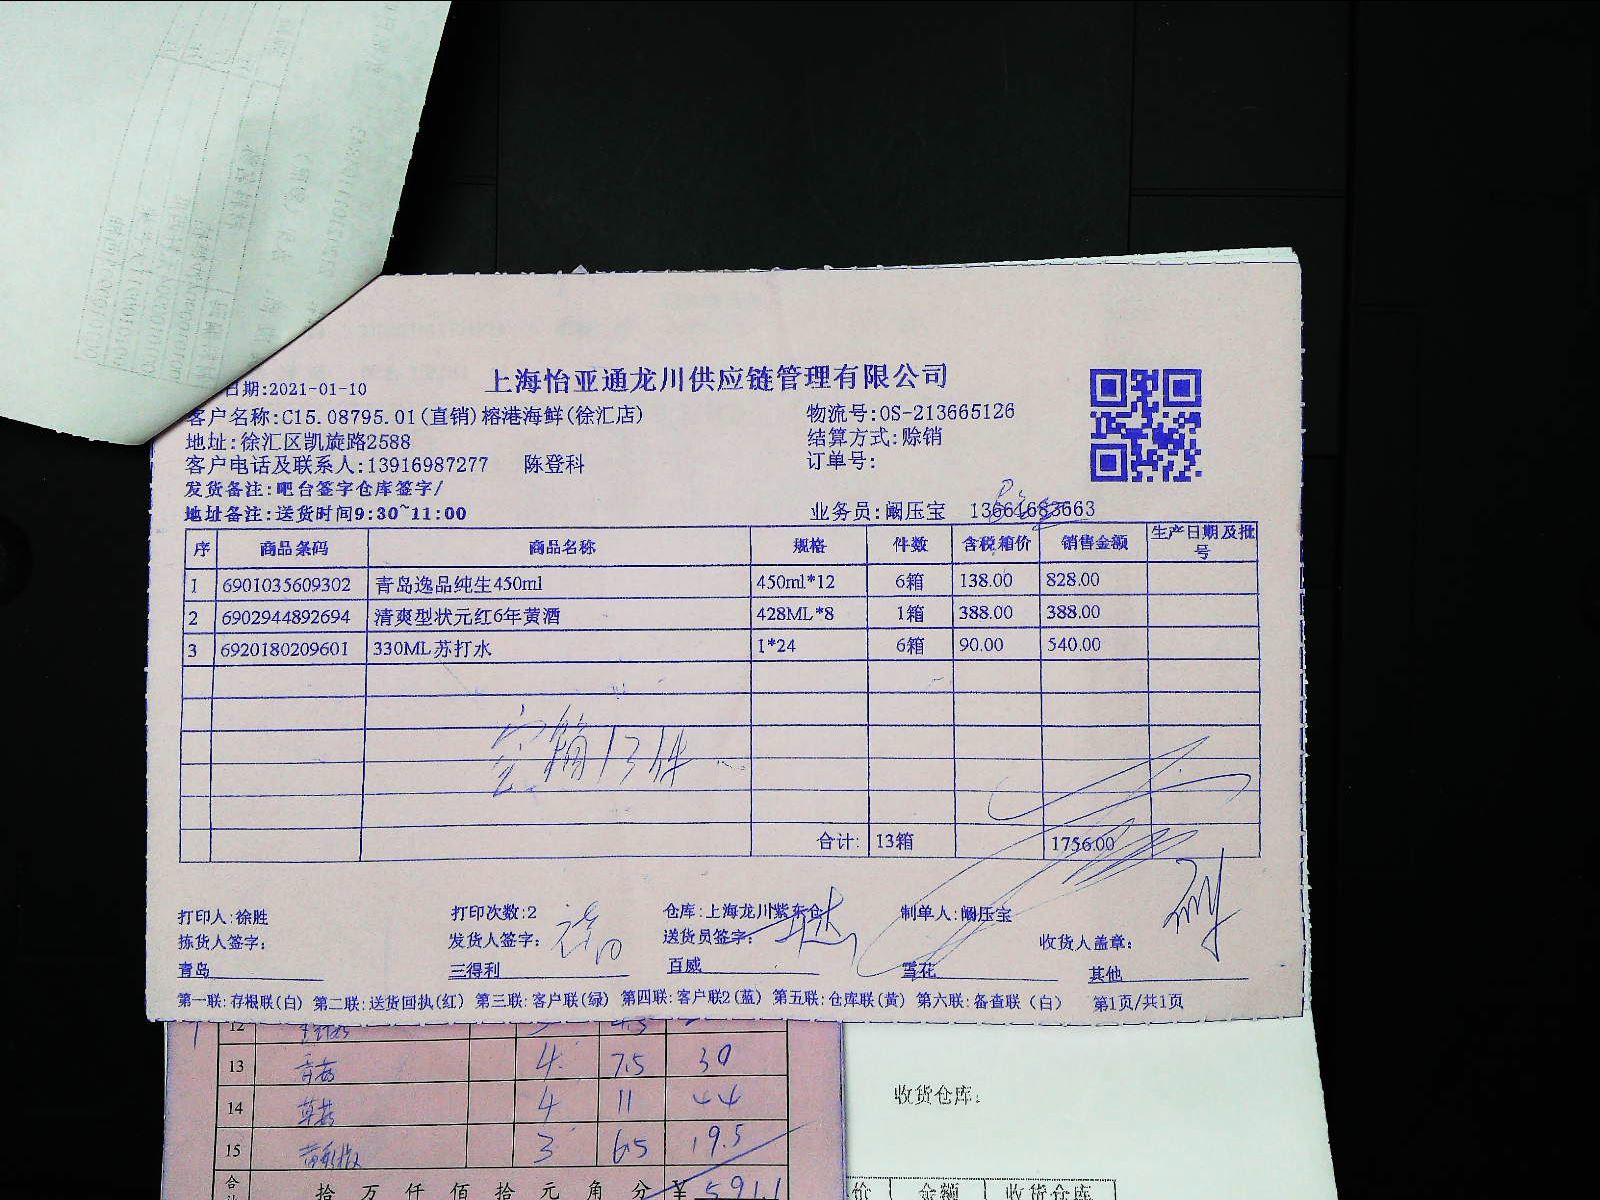 日期:2021-01-10
上海怡亚通龙川供应链管理有限公司
客户名称:C15.08795.01(直销)榕港海鲜(徐汇店)
物流号:OS-213665126
地址:徐汇区凯旋路2588
结算方式:赊销
客户电话及联系人:13916987277 陈登科
订单号:
发货备注:吧台签字仓库签字/
地址备注:送货时间9:30~11:00
业务员:阚压宝 13661683663
序 商品条码 商品名称 规格 件数 含税箱价 销售金额 生产日期及批号
1 6901035609302 青岛逸品纯生450ml 450ml*12 6箱 138.00 828.00
2 6902944892694 清爽型状元红6年黄酒 428ML*8 1箱 388.00 388.00
3 6920180209601 330ML苏打水 1*24 6箱 90.00 540.00
空箱13件
合计: 13箱 1756.00
打印人:徐胜 打印次数:2 仓库:上海龙川紫东仓 制单人:阚压宝
拣货人签字: 发货人签字: 送货员签字: 收货人盖章:
青岛 三得利 百威 雪花 其他
第一联:存根联(白) 第二联:送货回执(红) 第三联:客户联(绿) 第四联:客户联2(蓝) 第五联:仓库联(黄) 第六联:备查联(白) 第1页/共1页
12
13 4 7.5 30
14 4 11 44
15 3 6.5 19.5
合 拾 万 仟 佰 拾 元 角 分 ¥ 591.1
收货仓库:
价 金额 收货仓库